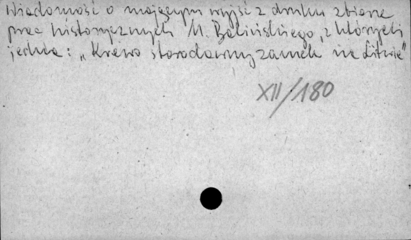 Wiadomość o mającym wyjść z druku zbiorze
prac historycznych M. Balińskiego, z których
jedna: „Krewo starodawny zamek na Litwie"
XII/180